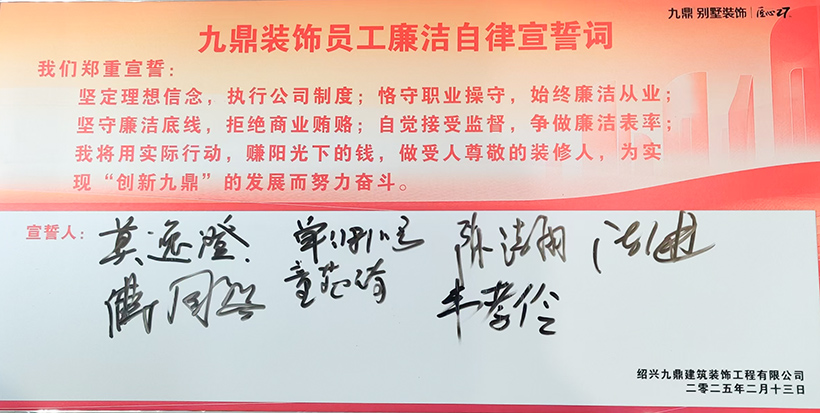 九鼎 别墅装饰 匠心27
九鼎装饰员工廉洁自律宣誓词
我们郑重宣誓：
坚定理想信念，执行公司制度；恪守职业操守，始终廉洁从业；
坚守廉洁底线，拒绝商业贿赂；自觉接受监督，争做廉洁表率；
我将用实际行动，赚阳光下的钱，做受人尊敬的装修人，为实
现“创新九鼎”的发展而努力奋斗。
宣誓人：莫逸澄
童范绮 牛孝伶
绍兴九鼎建筑装饰工程有限公司
二零二五年二月十三日